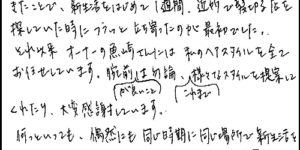 きたことで、新生活をはじめて1週間、近所で髪切る店を
探していた時にフラッと立ち寄ったのが最初でした。
それ以来 オーナーの恵崎さんには 私のヘアスタイルを全て
お任せしています。腕前は勿論、様々なスタイルを提案して
が良いこと これまで
くれたり、大変感謝しています。
何といっても、偶然にも 同じ時期に同じ場所で新生活を